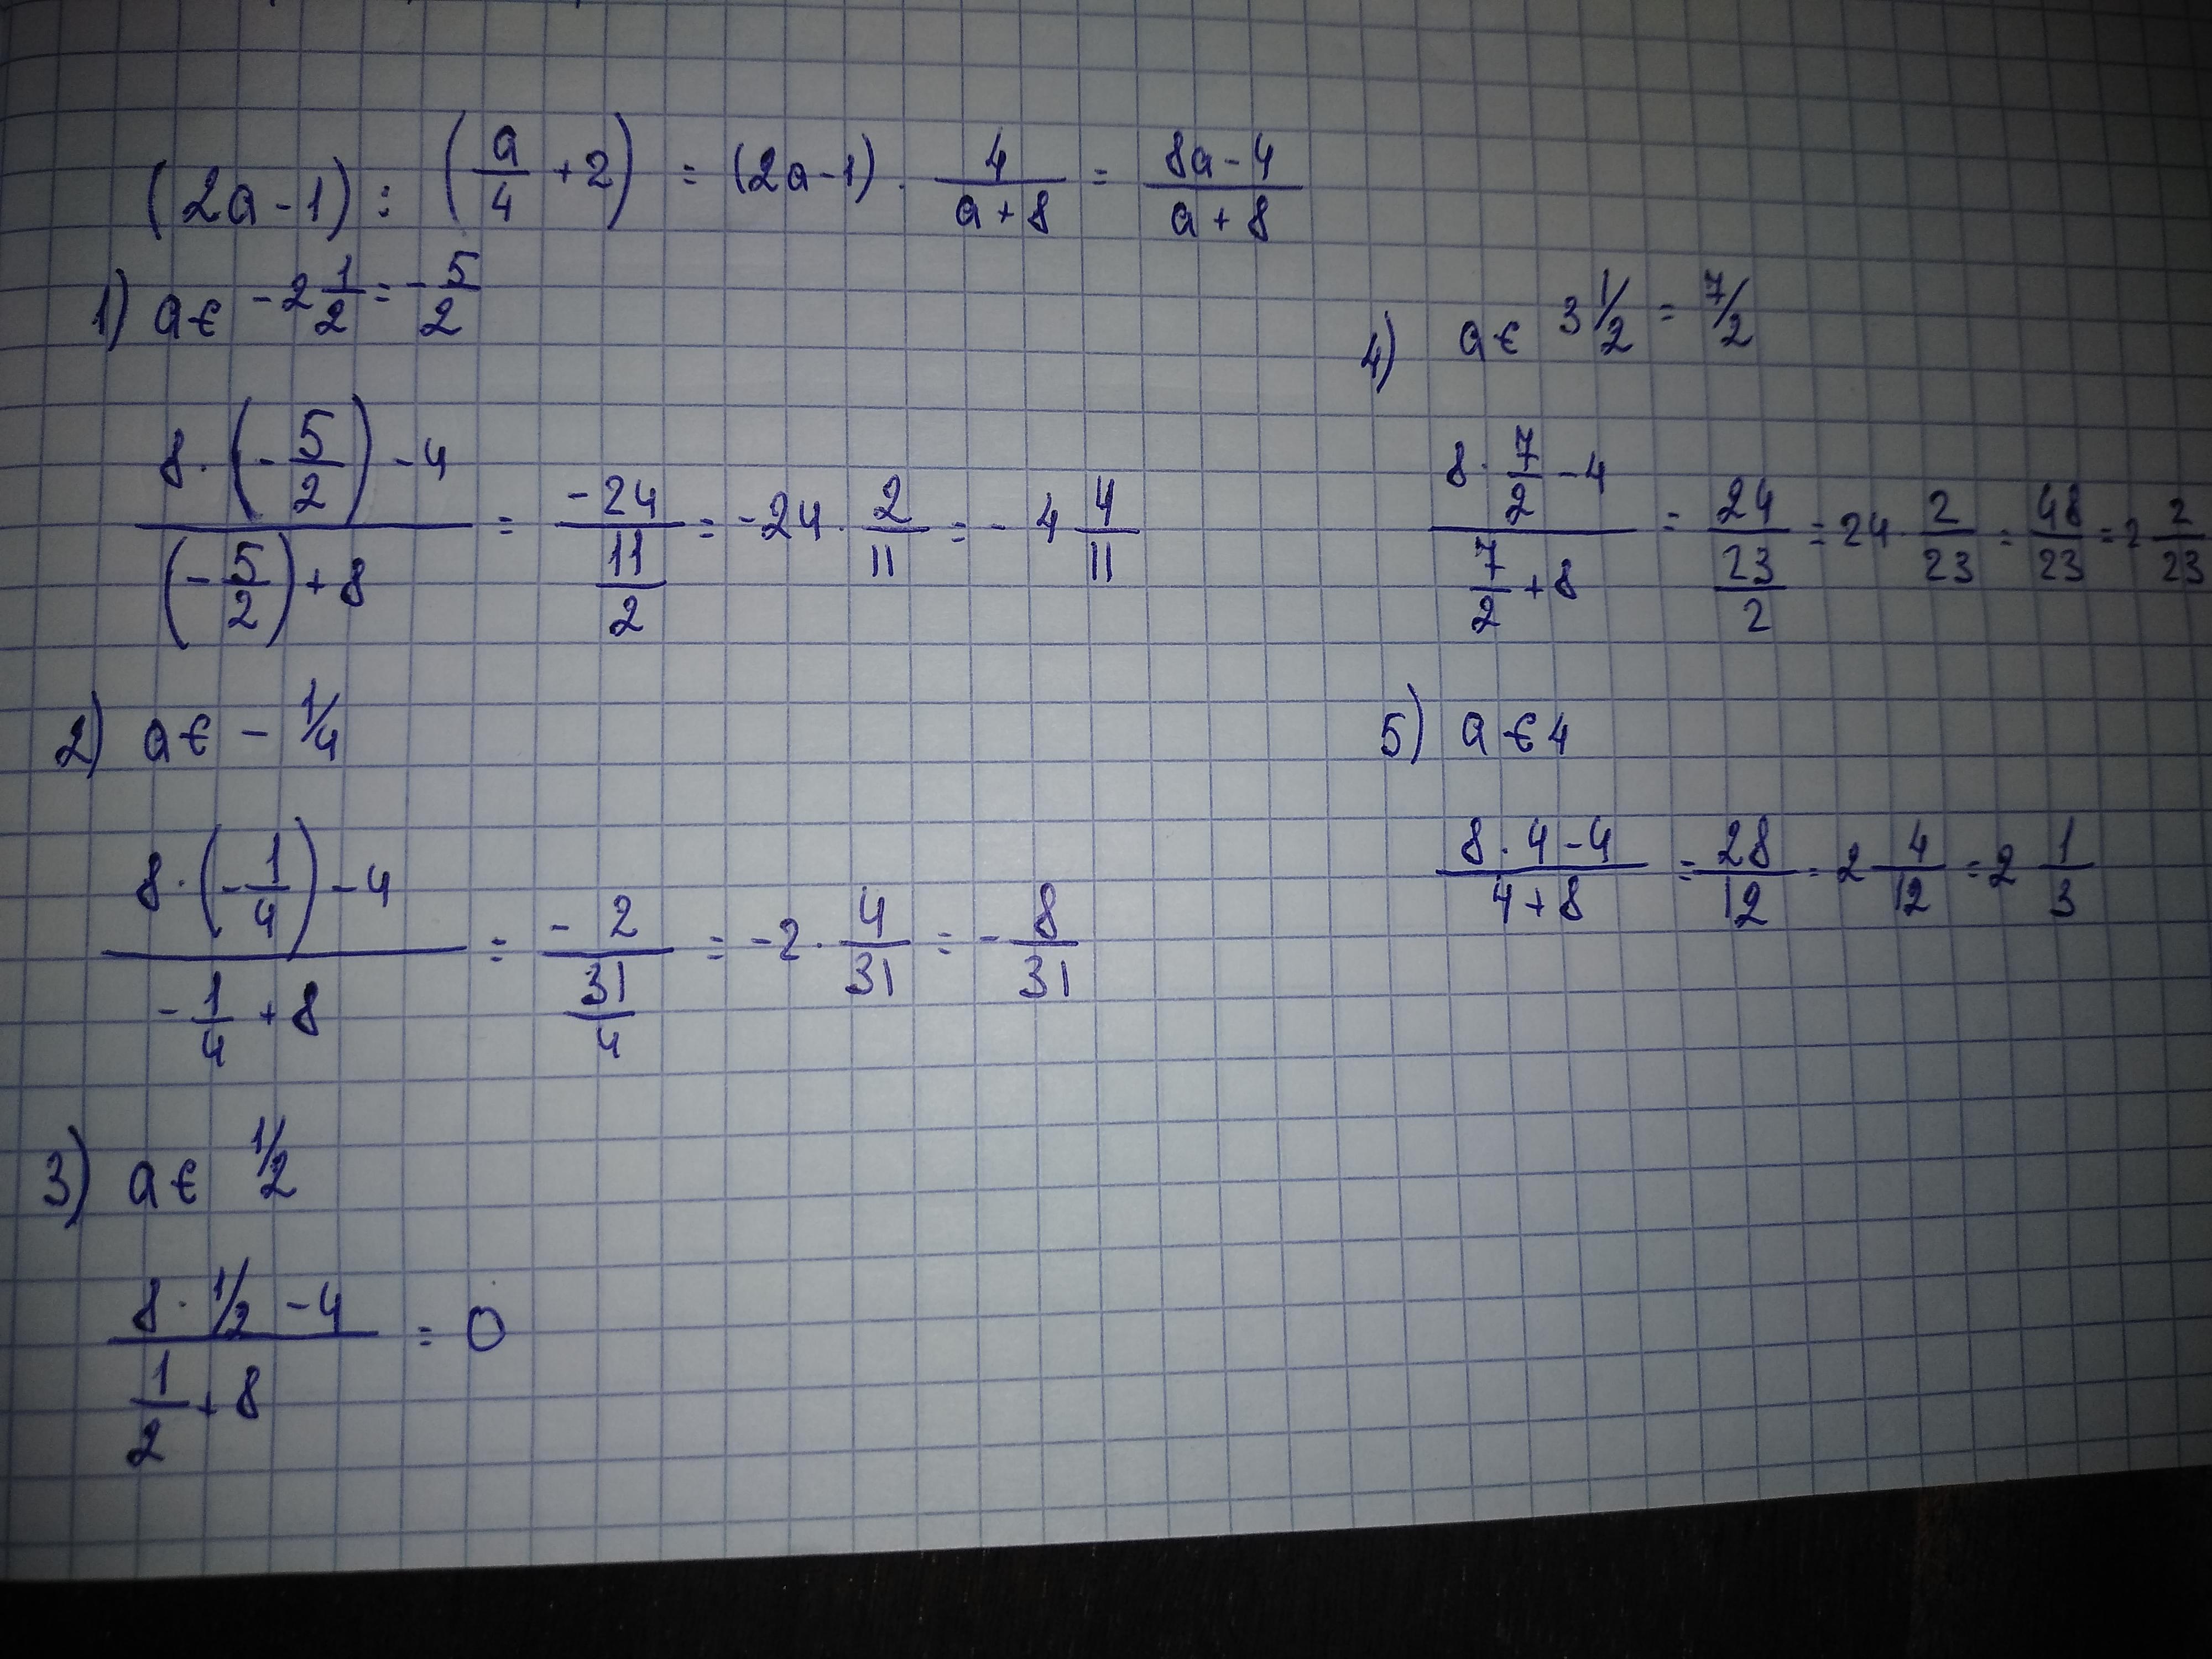 (2a-1) : (a/4 + 2) = (2a-1) · 4/(a+8) = (8a-4)/(a+8)
1) a ∈ -2 1/2 = -5/2
(8·(-5/2)-4)/((-5/2)+8) = -24/(11/2) = -24 · 2/11 = -4 4/11
2) a ∈ - 1/4
(8·(-1/4)-4)/(-1/4+8) = -2/(31/4) = -2 · 4/31 = -8/31
3) a ∈ 1/2
(8·1/2-4)/(1/2+8) = 0
4) a ∈ 3 1/2 = 7/2
(8·7/2-4)/(7/2+8) = 24/(23/2) = 24 · 2/23 = 48/23 = 2 2/23
5) a ∈ 4
(8·4-4)/(4+8) = 28/12 = 2 4/12 = 2 1/3